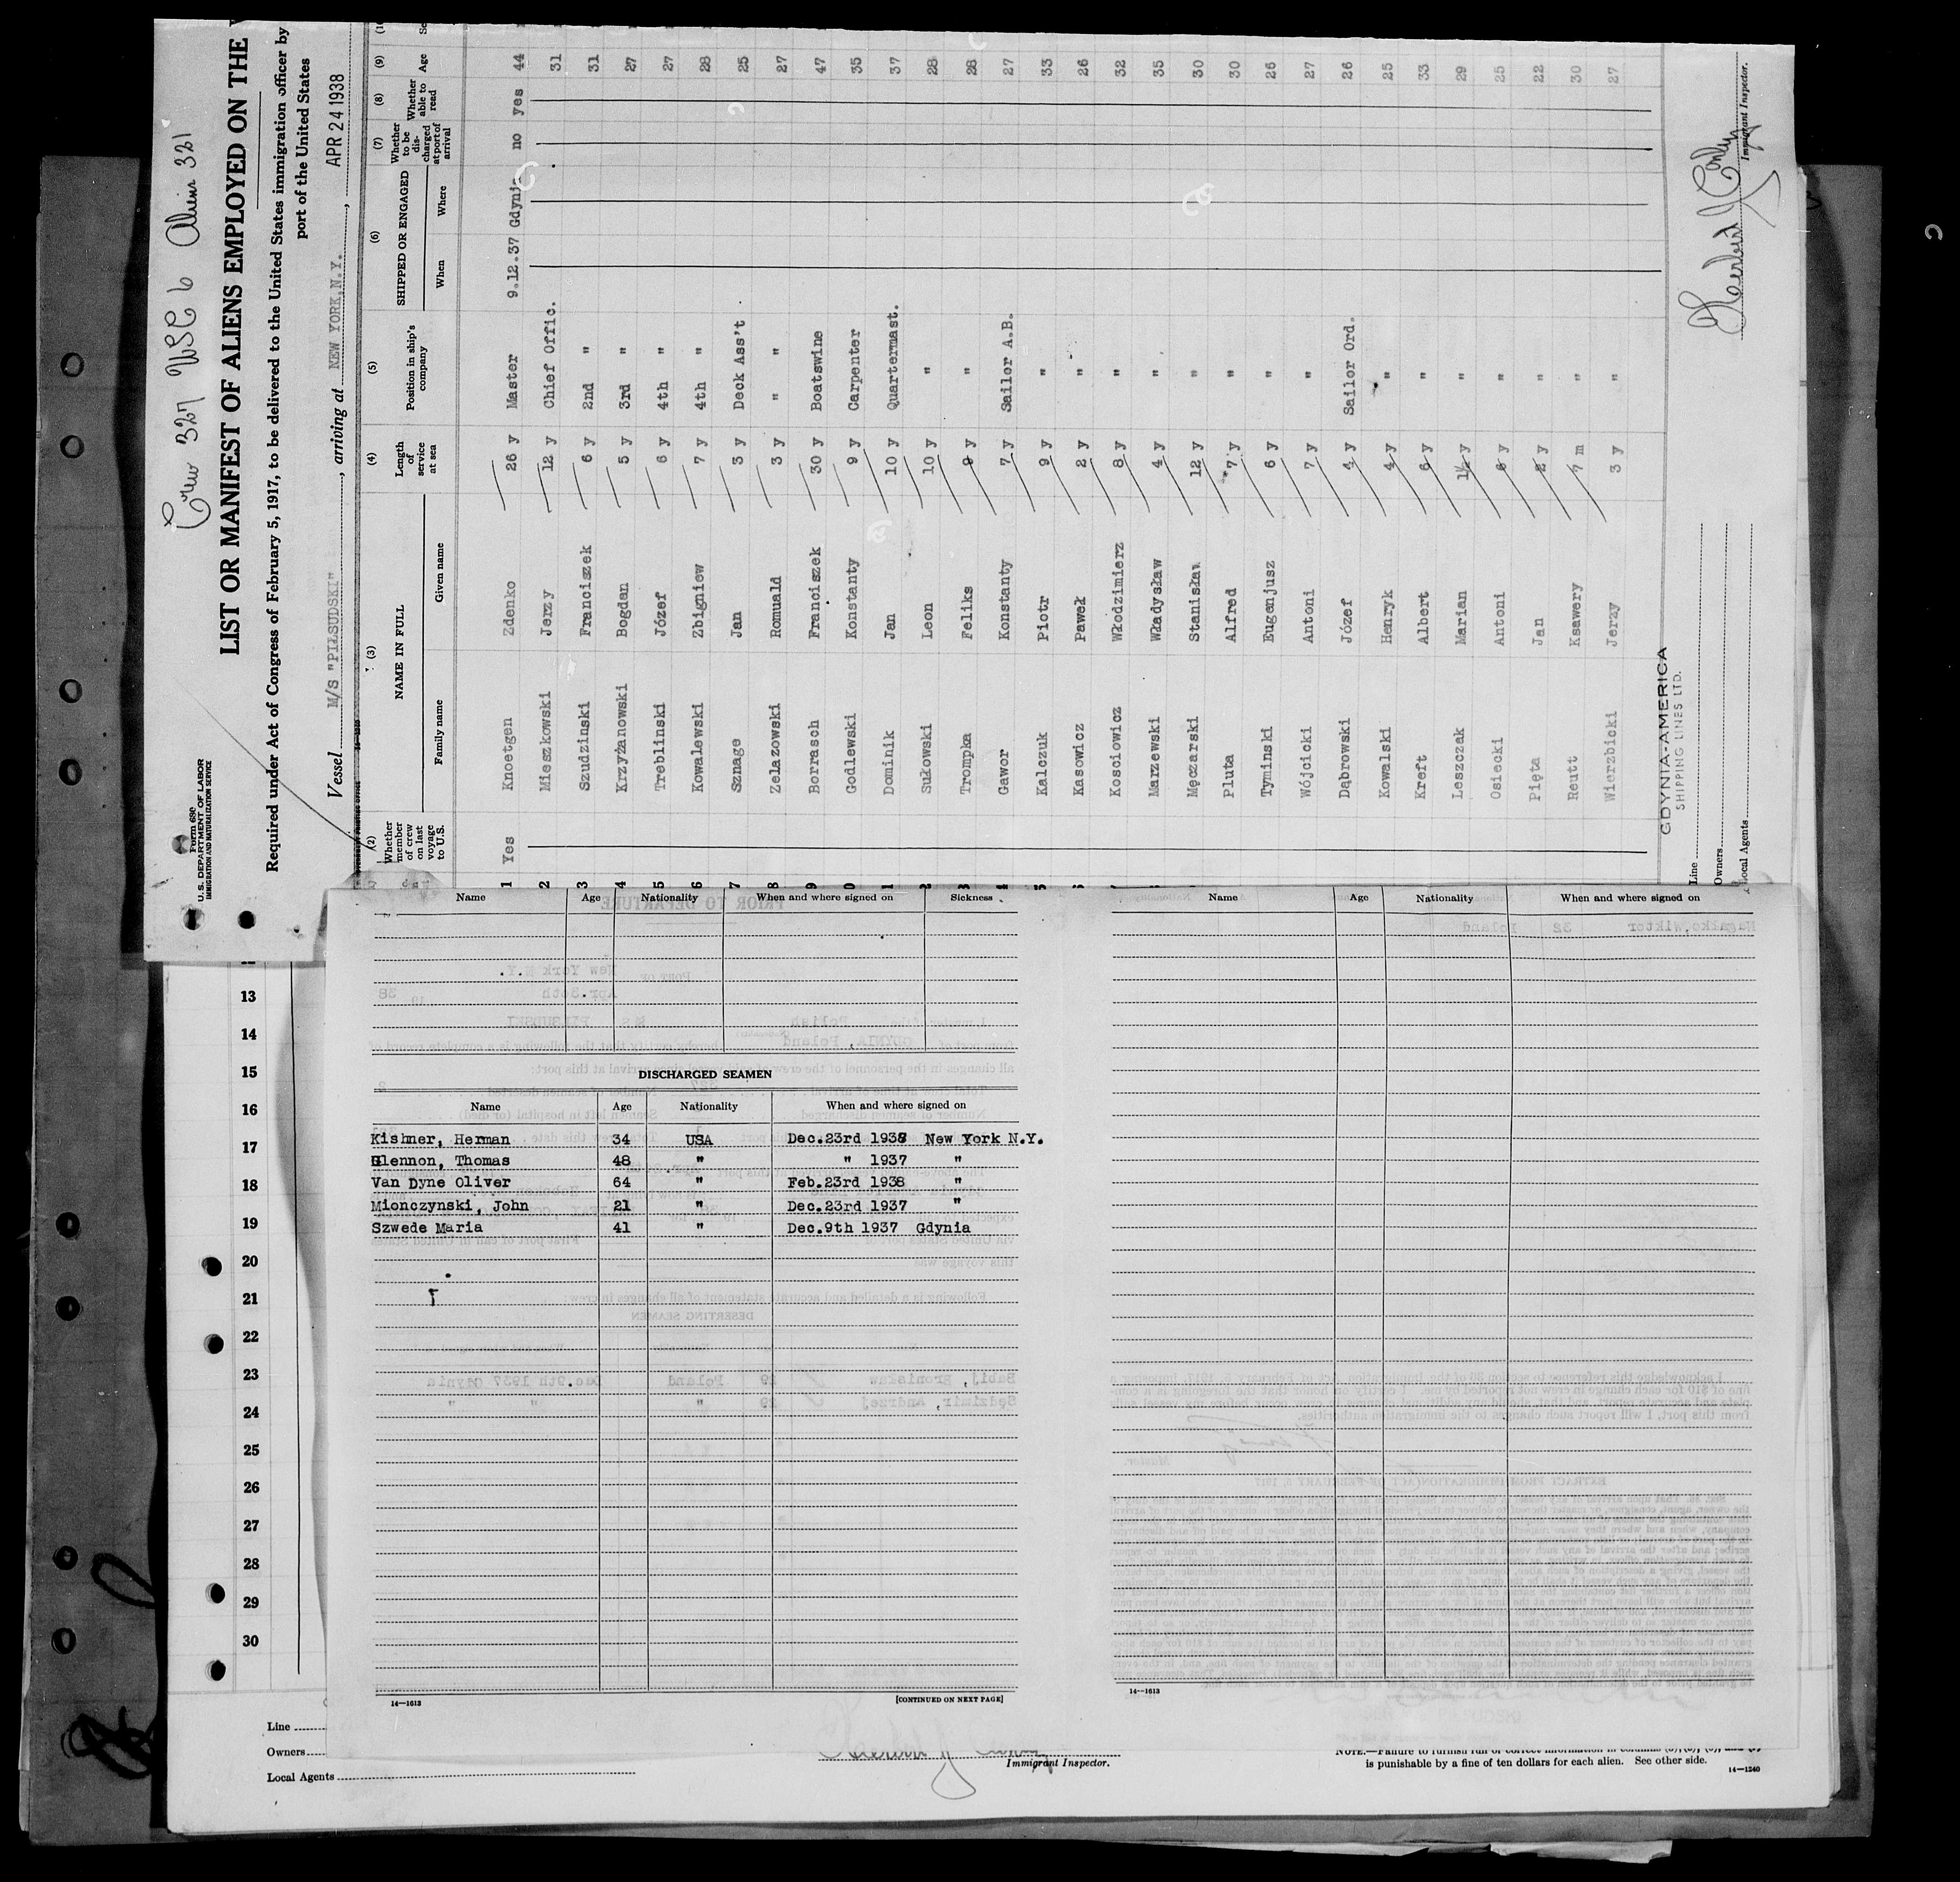 Crew 327 USC 6 Aliens 321
Form 680
U.S. DEPARTMENT OF LABOR
IMMIGRATION AND NATURALIZATION SERVICE
LIST OR MANIFEST OF ALIENS EMPLOYED ON THE
Required under Act of Congress of February 5, 1917, to be delivered to the United States immigration officer by
port of the United States
Vessel M/S "PIŁSUDSKI", arriving at NEW YORK, N.Y., APR 24 1938
(2) (3) (4) (5) (6) (7) (8) (9)
Whether member of crew on last voyage to U.S. NAME IN FULL Family name Given name Length of service at sea Position in ship's company SHIPPED OR ENGAGED When Where Whether to be discharged at port of arrival Whether able to read Age
1 Yes Knoetgen Zdenko 26 y Master 9.12.37 Gdynia no yes 44
2 Mieszkowski Jerzy 12 y Chief Offic. 31
3 Szudzinski Franciszek 6 y 2nd " 31
4 Krzyżanowski Bogdan 5 y 3rd " 27
5 Treblinski Józef 6 y 4th " 27
6 Kowalewski Zbigniew 7 y 4th " 28
7 Sznage Jan 3 y Deck Ass't 25
8 Zelazowski Romuald 3 y " " 27
9 Borrasch Franciszek 30 y Boatswine 47
0 Godlewski Konstanty 9 y Carpenter 35
1 Dominik Jan 10 y Quartermast. 37
2 Sułkowski Leon 10 y " 28
3 Trompka Feliks 9 y " 28
4 Gawor Konstanty 7 y Sailor A.B. 27
5 Kalczuk Piotr 9 y " 33
6 Kasowicz Paweł 2 y " 26
7 Kosciowicz Włodzimierz 8 y " 32
Marzewski Władysław 4 y " 35
Męczarski Stanisław 12 y " 30
Pluta Alfred 7 y " 30
Tyminski Eugenjusz 6 y " 26
Wójcicki Antoni 7 y " 27
Dąbrowski Józef 4 y Sailor Ord. 26
Kowalski Henryk 4 y " 25
Kreft Albert 6 y " 33
Leszczak Marian 1½ y " 29
Osiecki Antoni 6 y " 25
Pięta Jan 2 y " 22
Reutt Ksawery 7 m " 30
Wierzbicki Jerzy 3 y " 27
GDYNIA-AMERICA
SHIPPING LINES LTD.
Line
Owners
Local Agents
Immigrant Inspector.
Name Age Nationality When and where signed on Sickness
DISCHARGED SEAMEN
Name Age Nationality When and where signed on
Kishner, Herman 34 USA Dec.23rd 1938 New York N.Y.
Glennon, Thomas 48 " " 1937 "
Van Dyne Oliver 64 " Feb.23rd 1938 "
Mionczynski, John 21 " Dec.23rd 1937 "
Szwede Maria 41 " Dec.9th 1937 Gdynia
14—1613
[CONTINUED ON NEXT PAGE]
Name Age Nationality When and where signed on
14—1613
13
14
15
16
17
18
19
20
21
22
23
24
25
26
27
28
29
30
Line
Owners
Local Agents
Immigrant Inspector.
is punishable by a fine of ten dollars for each alien. See other side.
14—1240